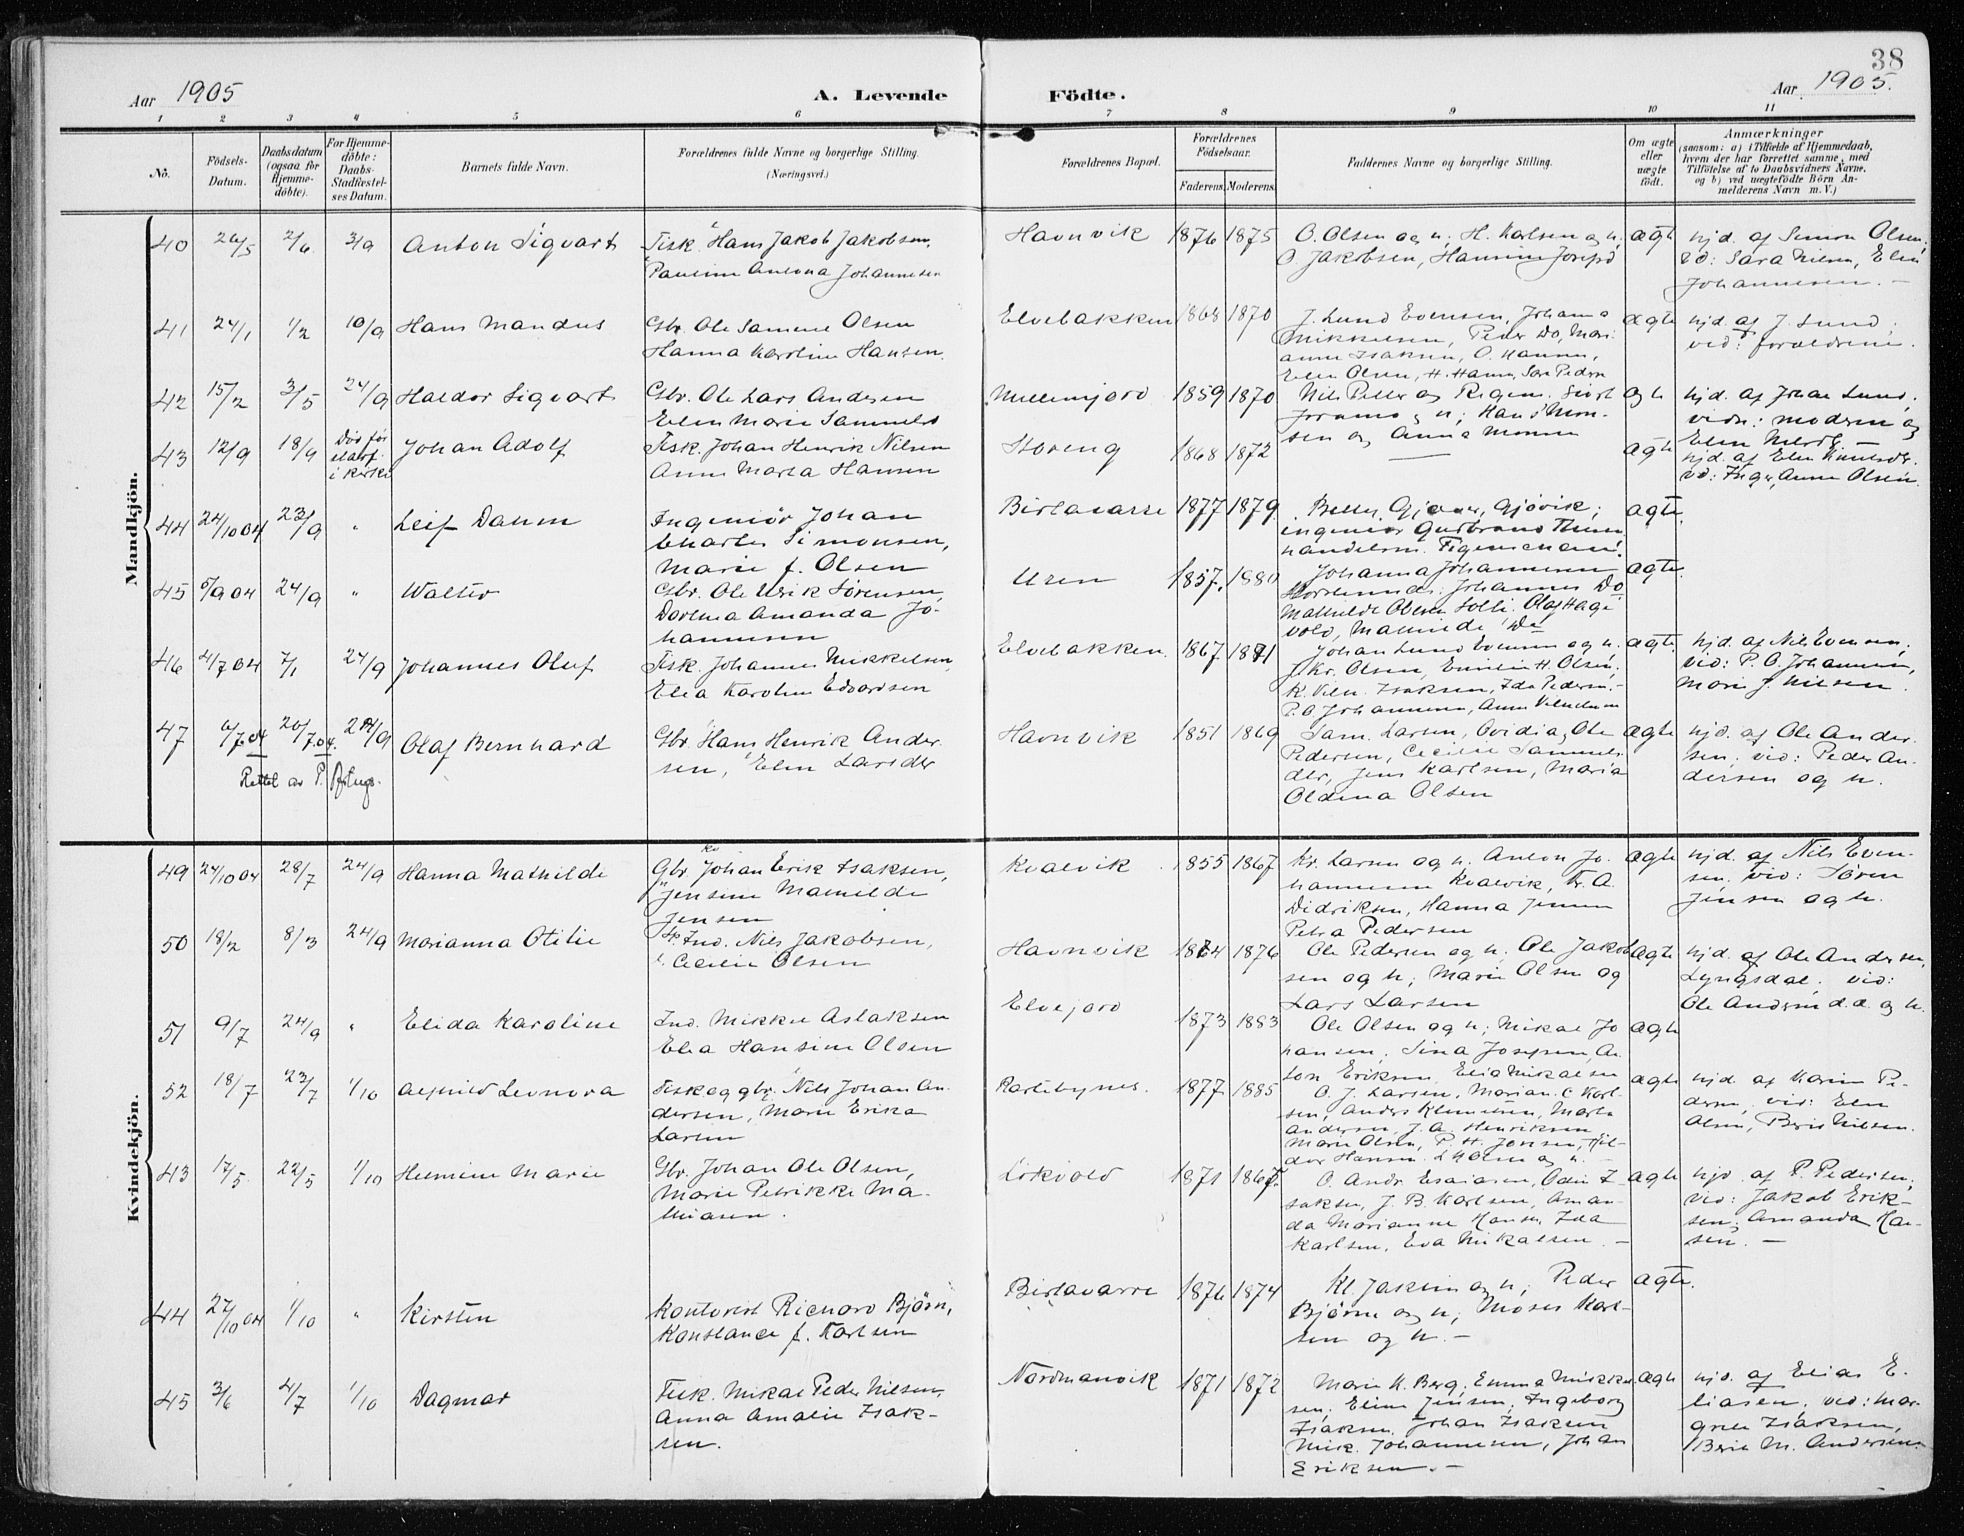 38
Aar 1905
A. Levende
Födte.
Aar 1905.
1 2 3 4 5 6 7 8 9 10 11
No.
Födsels-
Datum.
Daabsdatum
(ogsaa for
Hjemme-
döbte).
For Hjemme-
döbte:
Daabs-
Stadfæstel-
ses Datum.
Barnets fulde Navn.
Forældrenes fulde Navne og borgerlige Stilling.
(Næringsvei.)
Forældrenes Bopæl.
Forældrenes
Födselsaar.
Faderens. Moderens.
Faddernes Navne og borgerlige Stilling.
Om ægte
eller
uægte
födt.
Anmærkninger
(saasom: a) i Tilfælde af Hjemmedaab,
hvem der har forrettet samme, med
Tilföielse af to Daabsvidners Navne,
og b) ved uægtefödte Börn An-
melderens Navn m. V.)
Mandkjön.
40 26/5 2/6 3/9 Anton Sigvart
Fisk. Hans Jakob Jakobsen,
Pauline Antona Johannesen
Havnvik 1876 1875
O. Olsen og h; H. Karlsen og h,
O. Jakobsen, Hansine Josefsd
ægte
hjd. af Simon Olsen,
vd: Sara Nilsen, Elen
Johannesen. -
41 24/1 1/2 10/9 Hans Mandus
Gbr. Ole Samme Olsen
Hanna Karoline Hansen.
Elvebakken 1868 1870
J. Lund Evensen, Johanna
Mikkelsen, Peder Do, Mari-
anne Isaksen, O. Hansen,
Elen Olsen, H. Hansen, Sara Peders
ægte
hjd. af J. Lund;
vid: forældrene.
42 15/2 3/5 24/9 Haldor Sigvart
Gbr. Ole Lars Andersen
Elen Marie Sammelsd
1859 1870
Nils Peder og
og h; Hans Mon-
sen og Anna Monsen
ægte
hjd. af Johan Lund,
vidn: moderen og
Elen
43 12/9 18/9 Død før
i kirke
Johan Adolf
Fisk. Johan Henrik Nilsen
Anne Marta Hansen
Storeng 1868 1872
ægte
hjd. af Elen Knutsdr.
vd: Inger, Anne Olsen
44 24/10 04 23/9 " Leif Damm
Ingeniør Johan
Charles Simonsen,
Marie f. Olsen
Birtavarre 1877 1879
Gjøvik;
ingeniør Gudbrand
handelsm.
ægte.
45 5/9 04 24/9 " Walter
Gbr. Ole Ulrik Sørensen,
Dortea Amanda Jo-
hannesen
Uren 1857. 1880
Johanna Johannesen
Johannes Do
Mathilde Olsen Solli, Olaf Hage
vold, Mathilde Do
ægte.
46 4/7 04 7/1 24/9 Johannes Oluf
Fisk. Johannes Mikkelsen,
Elea Karoline Edvardsen
Elvebakken. 1867 1871
Johan Lund Evensen og h.
Kr. Olsen, Emilie H. Olsen,
K. Vilh. Isaksen, Ida Pedersen.-
P. O. Johannesen, Anna Vilhelmsen
ægte
hjd. af Nils Evensen;
vid: P. O. Johannesen,
Marie J. Nilsen.
47 6/7 04 20/7.04. 24/9 Olaf Bernhard
Gbr. Hans Henrik Ander-
sen, Elen Larsdr
Havnvik 1851 1869
Sam. Larsen, Ovidia, Ole
Pedersen, Cecilie Sammels-
der, Jens Karlsen, Maria
Oldina Olsen
ægte
hjd. af Ole Ander-
sen, vid: Peder An-
dersen og h.
Rettet av P.
Kvindekjön.
49 24/10 04 28/7 24/9 Hanna Mathilde
Gbr. Johan Erik Isaksen,
Jensine Mathilde
Jensen
Kvalvik 1855 1867
Kr. Larsen og h. Anton Jo-
hannesen Kvalvik, Kr. A.
Didriksen, Hanna Jensen
Petra Pedersen
ægte
hjd. af Nils Even-
sen, vid: Søren
Jensen og h.
50 18/2 8/3 24/9 Marianna Otilie
Ind. Nils Jakobsen,
Cecilie Olsen
Havnvik 1864 1876
Ole Pedersen og h; Ole Jakob-
sen og h; Marie Olsen og
Lars Larsen
ægte
hjd. af Ole Andersen,
Lyngsdal, vid:
Ole Andersen d.a. og h.
51 9/7 24/9 " Elida Karoline
Ind. Mikkel Aslaksen
Elea Hansine Olsen
Elvejord 1873 1883
Ole Olsen og h; Mikal Jo
hansen, Sina Josefsen, An-
ton Eriksen, Elea Mikalsen
ægte
52 18/7 23/7 1/10 Alfhild Leonora
Fisk og gbr. Nils Johan An-
dersen, Marie Erika
Larsen
Kartebynes. 1877 1885
O. J. Larsen, Marian. C. Karl-
sen, Anders Klemetsen, Marta
Andersen, J. A. Henriksen
Marie Olsen, P. H. Jonsen, Hil-
dor Hansen, og h. -
ægte
hjd. af Karen Pe-
dersen, vid: Elen
Olsen, Berit Nilsen.
43 17/5. 22/5 1/10 Helmine Marie
Gbr. Johan Ole Olsen,
Marie Petrikke Ma-
thiasen.
Lökvold 1871 1867.
O. Andr. Esaiasen, Odin I-
saksen, J. B. Karlsen, Aman-
da Marianne Hansen, Ida
Karlsen, Eva Mikalsen. -
ægte
hjd. af P. Pedersen,
vid: Jakob Erik-
sen, Amanda Han-
sen. -
44 27/10 04 1/10 " Kirsten
Kontorist Richard Bjørn,
Konstance f. Karlsen
Birtavarre 1876 1874
Kl. Jaksen og h; Peder
Bjørn og h; Moses Karl-
sen og h. -
ægte.
45 3/6 4/7 1/10 Dagmar
Fisk. Mikal Peder Nilsen,
Anna Amalie Isak-
sen.
Nordmanvik 1871 1872
Marie K. Berg, Emma Mikkel-
sen, Eline Jensen, Ingeborg
Isaksen, Johan Isaksen
Mik. Johannesen, Johan
Eriksen. -
ægte
hjd. af Elias E-
liasen, vid: Mar-
grete Isaksen,
Berit M. Andersen.